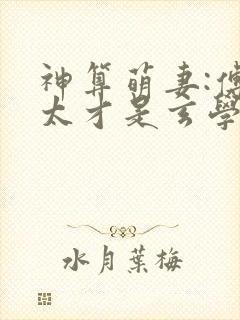 神算萌妻:傅
太才是玄學
水月葉梅